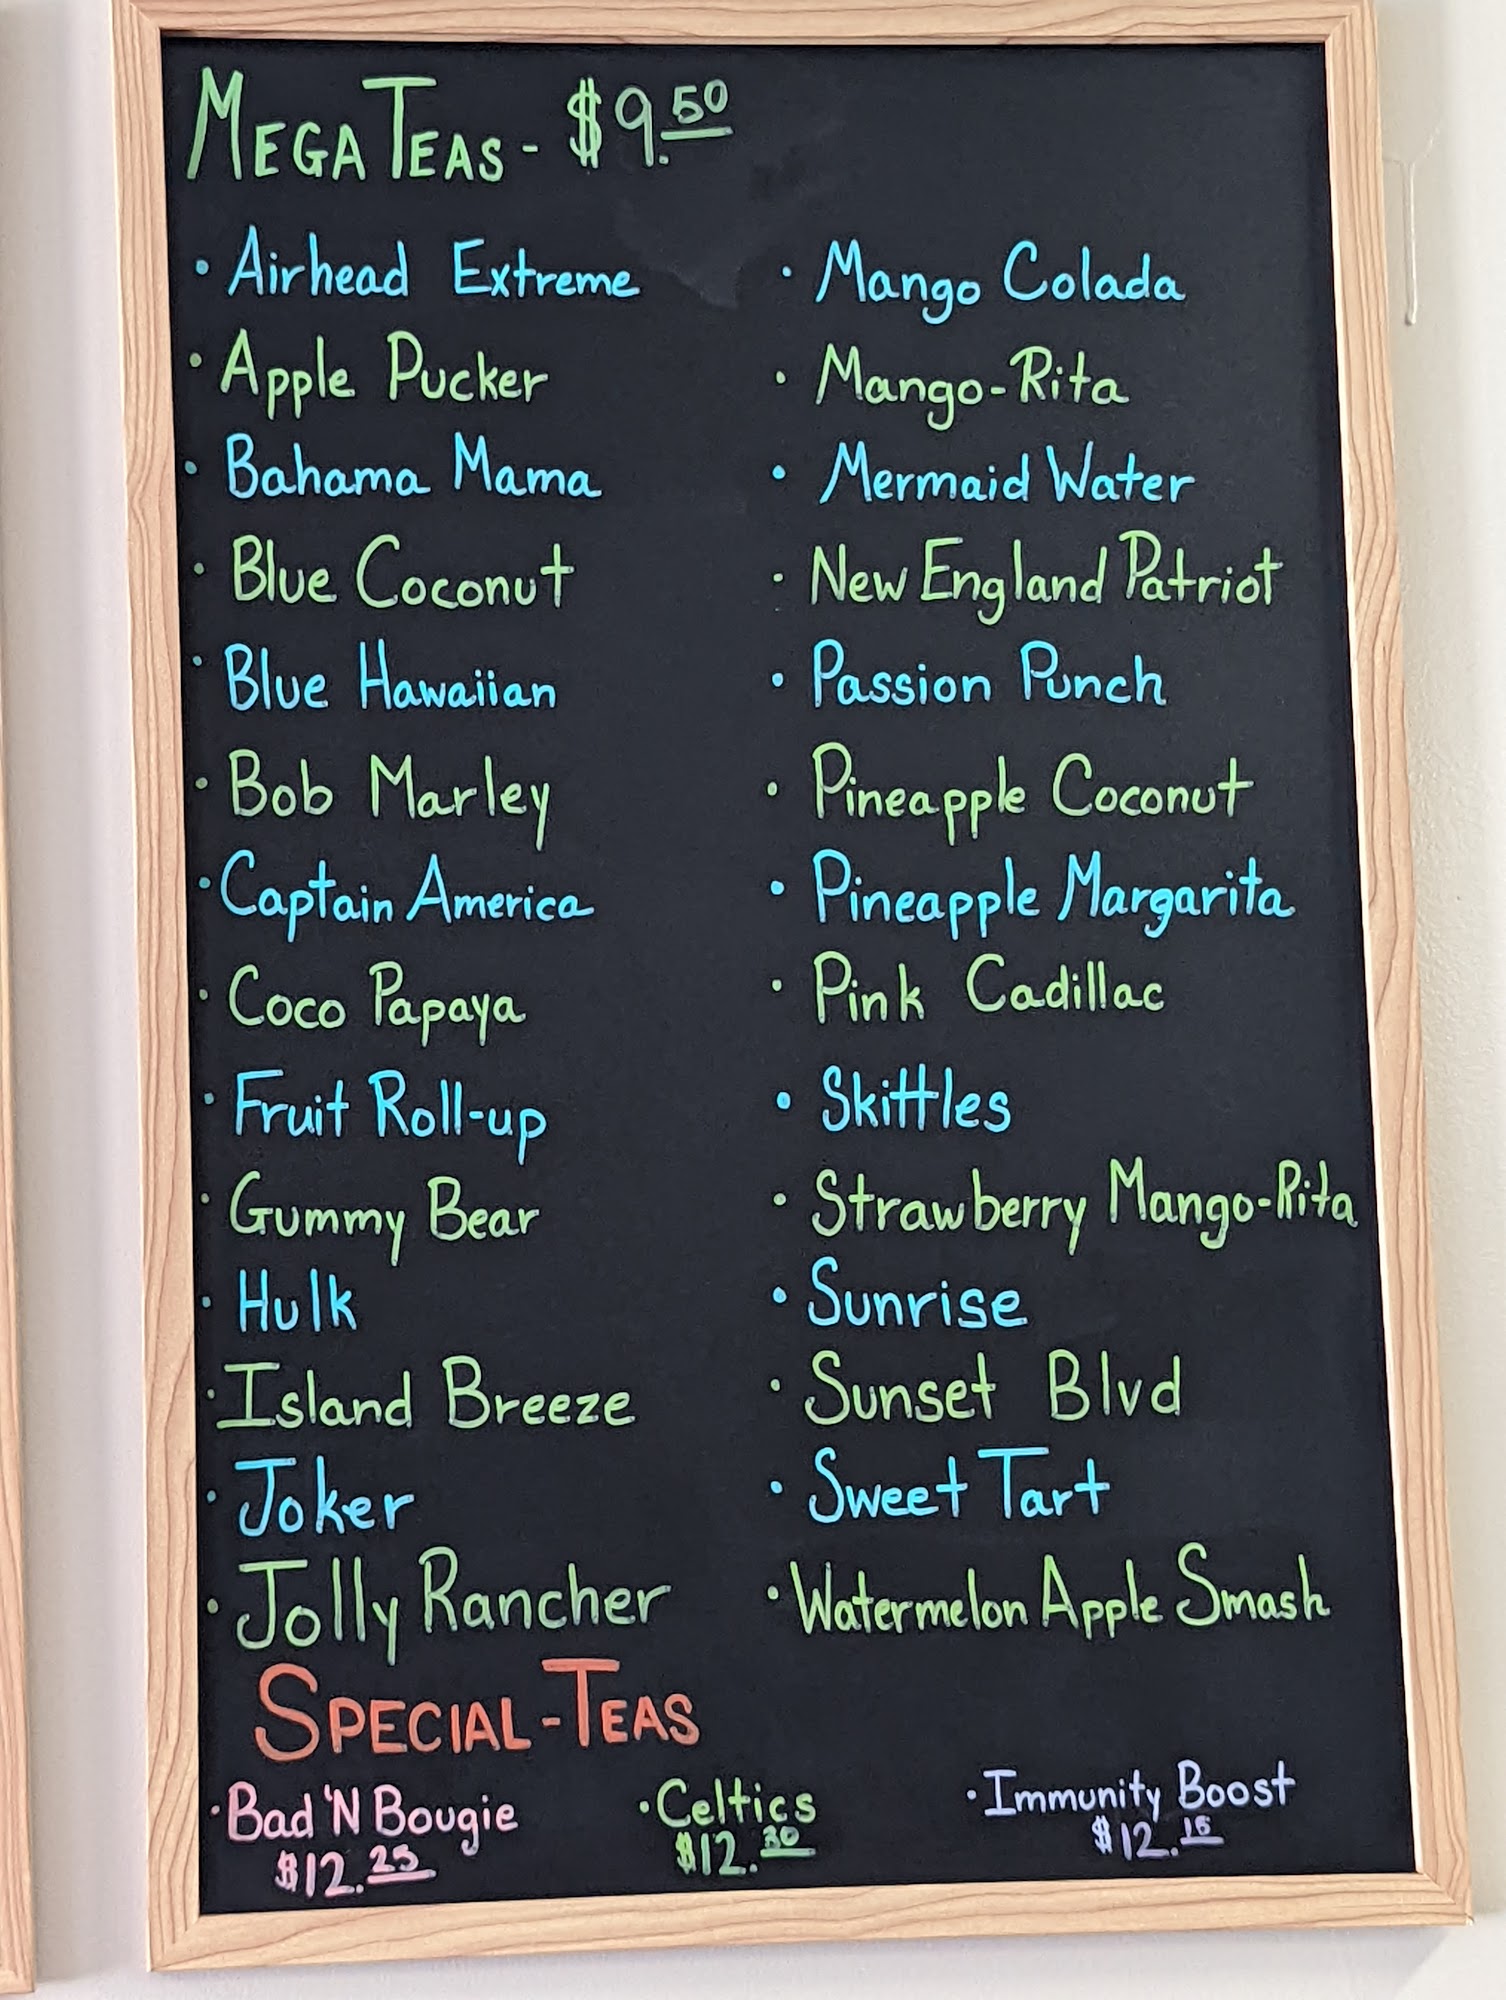 MEGA TEAS - $9.50
· Airhead Extreme
· Apple Pucker
· Bahama Mama
· Blue Coconut
· Blue Hawaiian
· Bob Marley
· Captain America
· Coco Papaya
· Fruit Roll-up
· Gummy Bear
· Hulk
· Island Breeze
· Joker
· Jolly Rancher
· Mango Colada
· Mango-Rita
· Mermaid Water
· New England Patriot
· Passion Punch
· Pineapple Coconut
· Pineapple Margarita
· Pink Cadillac
· Skittles
· Strawberry Mango-Rita
· Sunrise
· Sunset Blvd
· Sweet Tart
· Watermelon Apple Smash
SPECIAL-TEAS
· Bad 'N Bougie
$12.25
· Celtics
$12.30
· Immunity Boost
$12.15